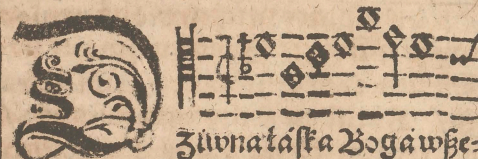 Dziwna łáſka Bogá wſze⸗